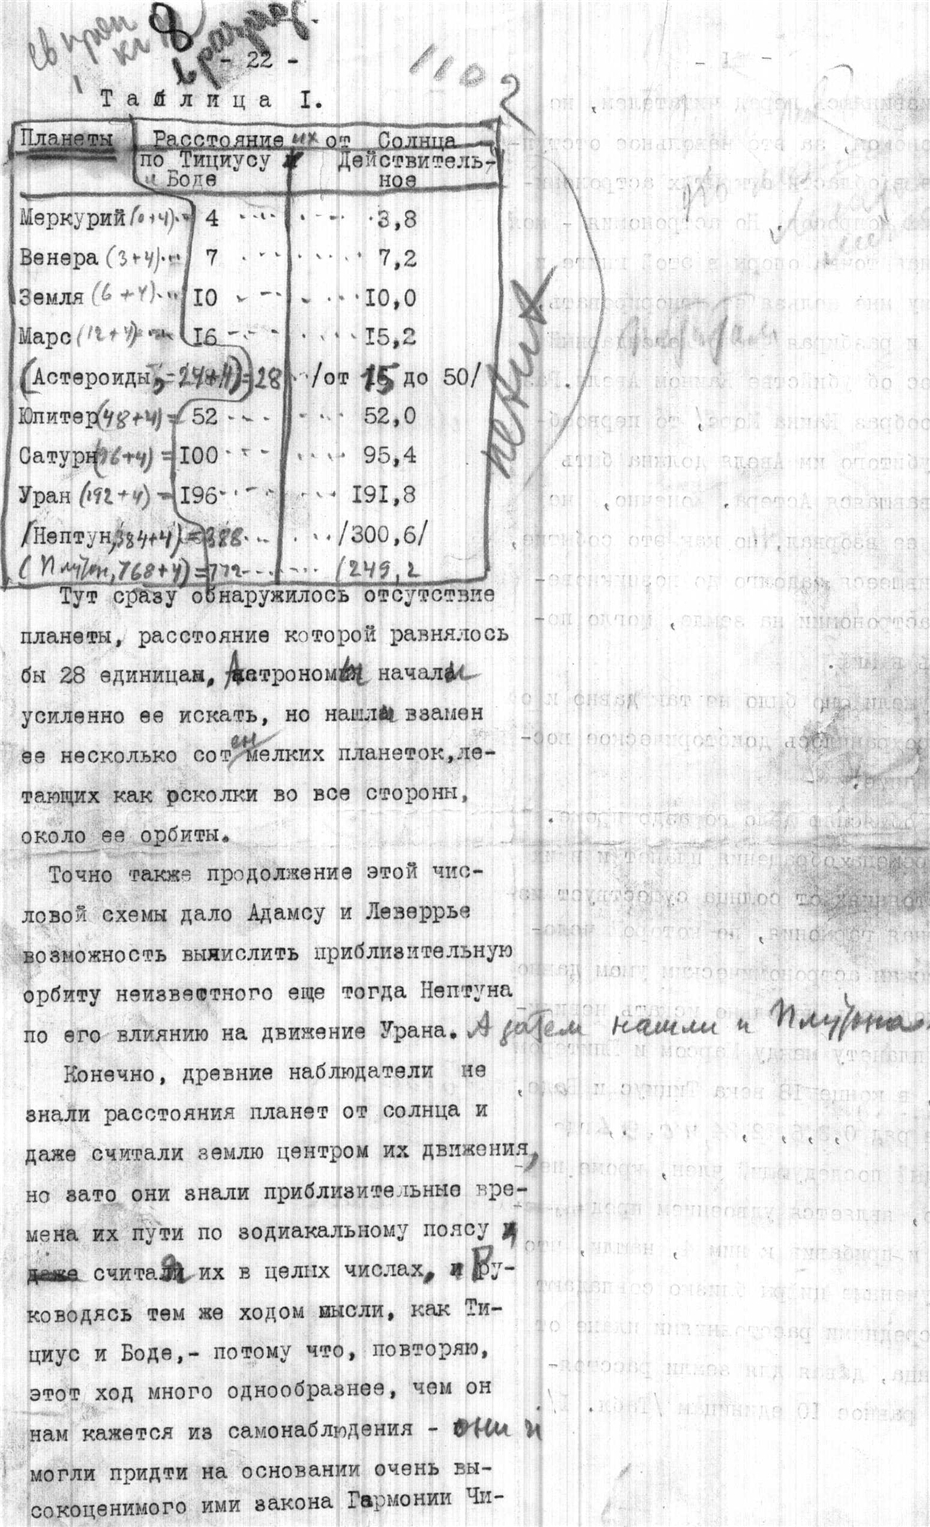 8
- 22 -
110
Таблица I.
Планеты Расстояние их от Солнца
по Тициусу и Боде Действительное
Меркурий (0+4) 4 3,8
Венера (3+4) 7 7,2
Земля (6+4) 10 10,0
Марс (12+4) 16 15,2
(Астероиды, 24+4)=28 /от 15 до 50/
Юпитер (48+4)= 52 52,0
Сатурн (96+4)= 100 95,4
Уран (192+4)= 196 191,8
/Нептун, 384+4)=388 /300,6/
(Плутон, 768+4)=772 /249,2
Тут сразу обнаружилось отсутствие
планеты, расстояние которой равнялось
бы 28 единицам. Астрономы начали
усиленно ее искать, но нашли взамен
ее несколько сотен мелких планеток,ле-
тающих как осколки во все стороны,
около ее орбиты.
Точно также продолжение этой чис-
ловой схемы дало Адамсу и Леверрье
возможность вычислить приблизительную
орбиту неизвестного еще тогда Нептуна
по его влиянию на движение Урана. А затем нашли и Плутона.
Конечно, древние наблюдатели не
знали расстояния планет от солнца и
даже считали землю центром их движения,
но зато они знали приблизительные вре-
мена их пути по зодиакальному поясу и
даже считали их в целых числах. Ру-
ководясь тем же ходом мысли, как Ти-
циус и Боде,- потому что, повторяю,
этот ход много однообразнее, чем он
нам кажется из самонаблюдения - они и
могли придти на основании очень вы-
сокоценимого ими закона Гармонии Чи-